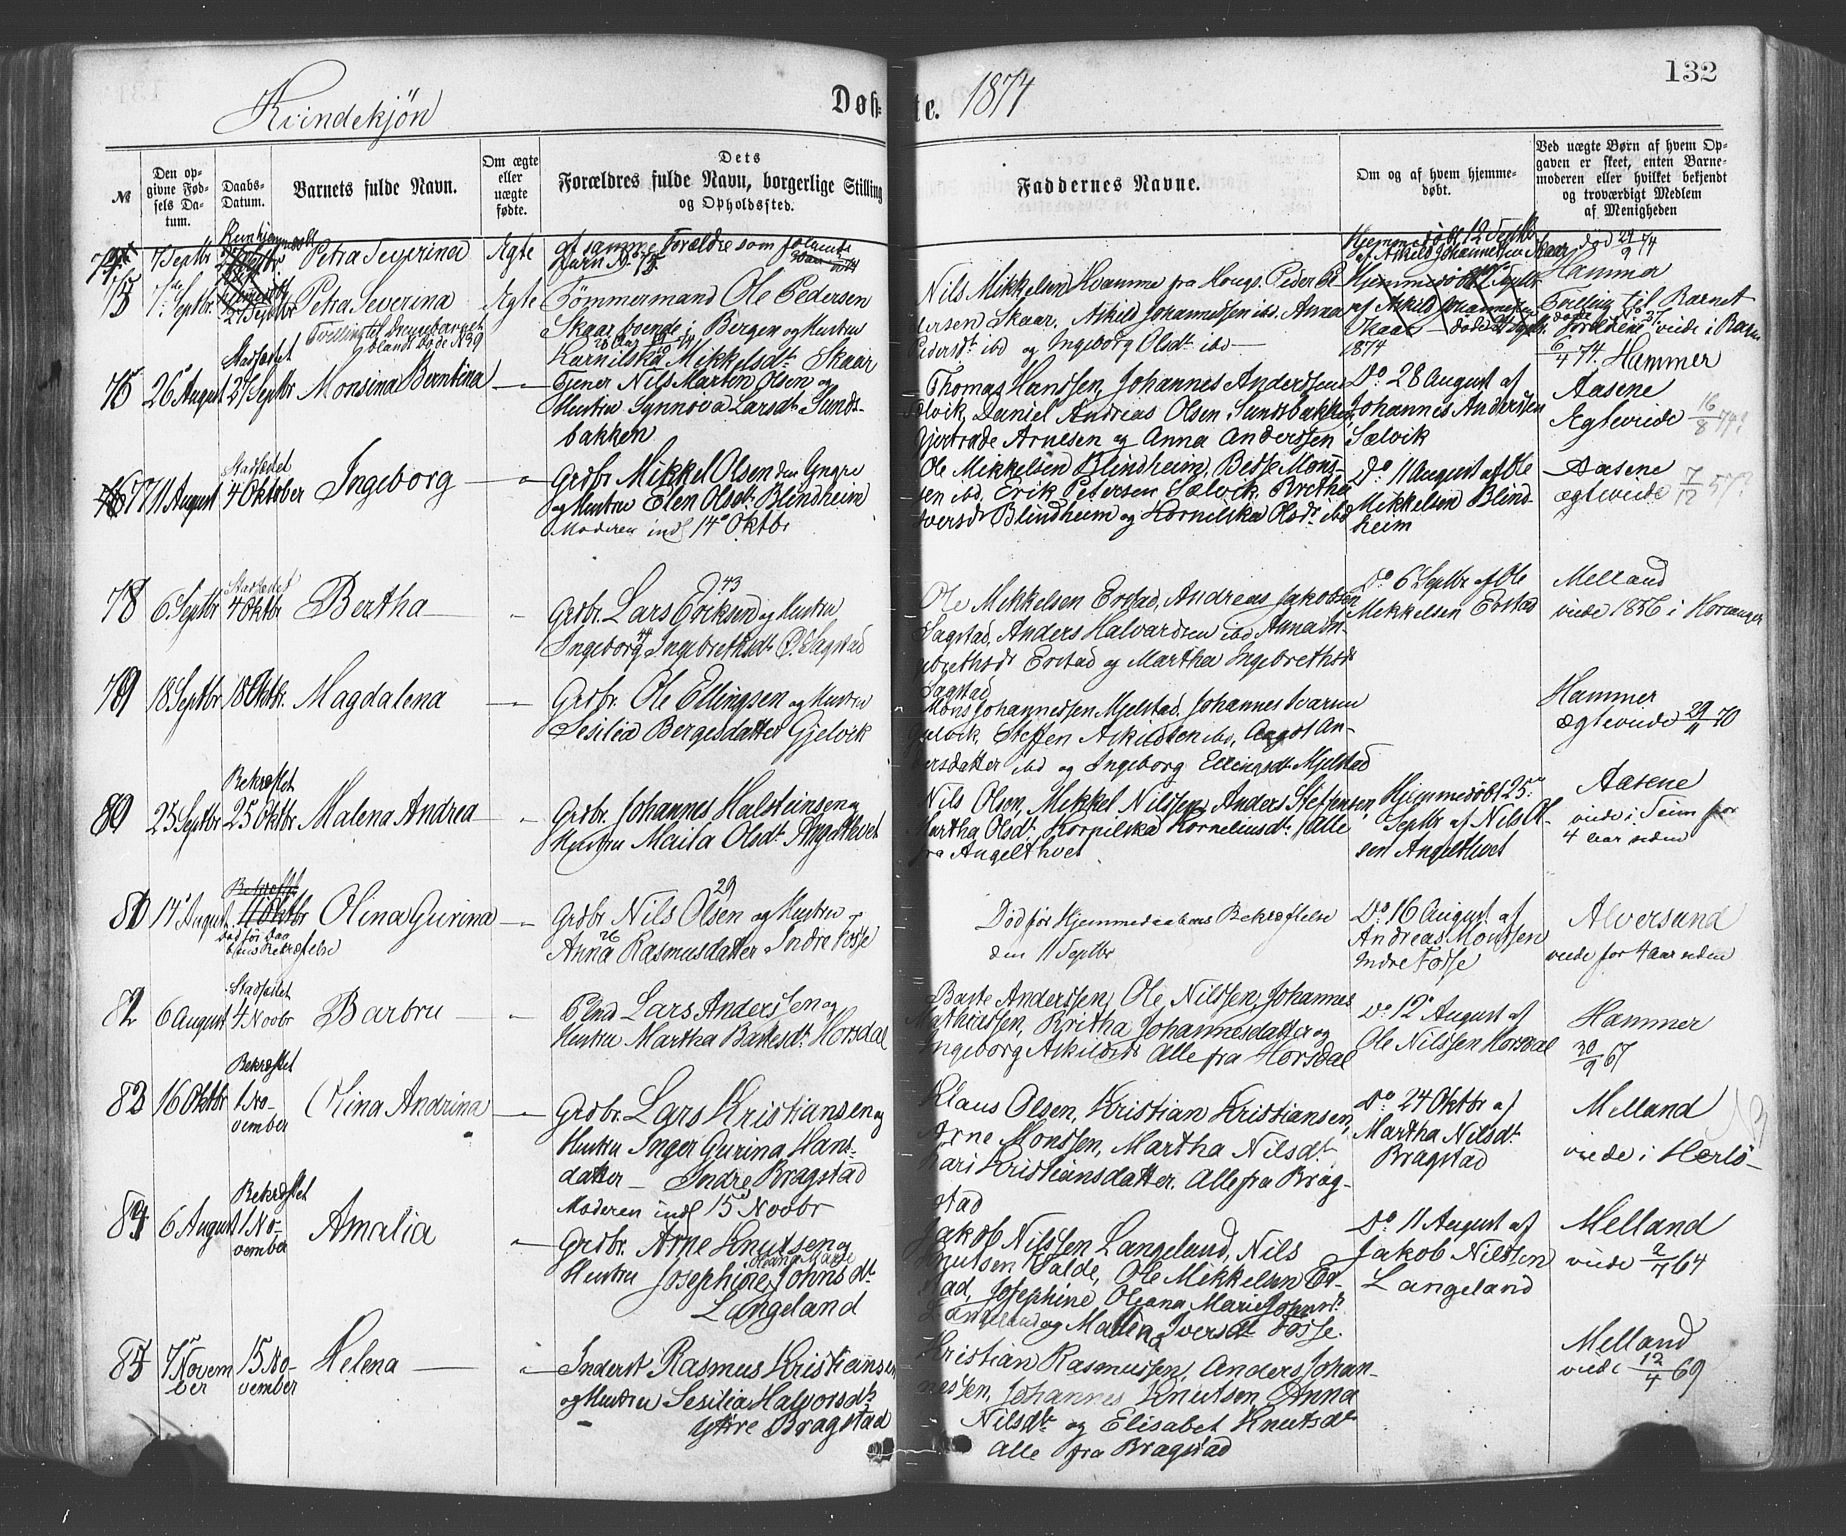 Kvindekjøn
Døb-
te.
1874
132
№
Den op-
givne Fød-
sels Da-
tum.
Daabs-
Datum.
Barnets fulde Navn.
Om ægte
eller
uægte
fødte.
Dets
Forældres fulde Navn, borgerlige Stilling
og Opholdssted.
Faddernes Navne.
Om og af hvem hjemme-
døbt.
Ved uægte Børn af hvem Op-
gaven er skeet, enten Barne-
moderen eller hvilket bekjendt
og troværdigt Medlem
af Menigheden
74 7 Septbr Kun hjemmedøbt Petra Severina Ægte af samme Forældre som følgende
Barn No 75
Hjemmedøbt 12 Septbr
af Askild Johannessen Skaar død 24/9 74
75 7 Septbr 27 Septbr Petra Severina Ægte Tømmermand Ole Pedersen
Skaar boende i Bergen og Hustru
Karnilska Mikkelsdt Skaar
Nils Mikkelsen Kvamme fra Houg. Peder
Pedersen Skaar, Askild Johannessen ibd. Anna
Pedersdt ibd og Ingeborg Olsdt ibd
1874
Hammer
Tvilling til Barnet
Forældrene viede i
6/4 74. Hammer
26 August Stadfæstet 27 Septbr Monsina Berntina Fener Nils Marten Olsen og
Hustru Synnøva Larsdt Sunds-
bakken
Thomas Hanssen, Johannes Anderssen
Sælvik, Daniel Andreas Olsen Sundsbakken,
Gjertrude Arnesen og Anna Anderssen
Do 28 August af
Johannes Anderssen
Sælvik
Aasene
Egteviede 16/8 74?
77 11 August Stadfæstet 4 Oktober Ingeborg Grdbr Mikkel Olsen den Yngre
og Hustru Elen Olsdt Blindheim
Moderen indl 14 Oktbr
Ole Mikkelsen Blindheim, Mons-
sen ibd, Erik Petersen Sælvik, Britha
Iversdt Blindheim og Kornilska Olsdt ibd
Do 11 August af Ole
Mikkelsen Blind-
heim
Aasene
ægteviede 7/12 57?
78 6 Septbr Stadfæstet 4 Oktbr Bertha Grdbr. Lars Eriksen 43 og Hustru
Ingeborg Ingebrethsdt Ø. Sagstad
Ole Mikkelsen Evstad, Andreas Jakobsen
Sagstad, Anders Halvardsen ibd, Anna In-
gebrethsdt Evstad og Martha Ingebrethsdt
Sagstad
Do 6 Septbr af Ole
Mikkelsen Evstad
Melland
viede 1856 i Hosanger
79 18 Septbr 18 Oktbr. Magdalena Grdbr. Ole Ellingsen og Hustru
Sesilia Bergesdatter Gjelvik
Mons Johannessen Mjelstad. Johannes Ivarsen
Gjelvik, Steffen Askildsen ibd, Aagot An-
dersdatter ibd og Ingeborg Ellingsdt Mjelstad
Hammer
ægteviede 29/4 70
80 25 Septbr Bekræftet 25 Oktbr Malena Andrea Grdbr. Johannes Halsteinsen og
Hustru Marta Olsdt Angeltvet
Nils Olsen, Mikkel Nilssen, Anders Steffensen,
Martha Olsdt, Kornilska Korneliusdt, Alle
fra Angelthvet
Hjemmedøbt 25de
Septbr af Nils Ol-
sen Angelthvet
Aasene
viede i Seim for
4 Aar siden
81 14 August Bekræftet 4 Oktbr Olina Gurina Grdbr Nils Olsen 29 og Hustru
Anna 26 Rasmusdatter Indre Fosse
død før Daa-
bens Bekræftelse
Død før Hjemmedaabens Bekræftelse
den 11 Septbr
Do 16 August af
Andreas Monssen
Indre Fosse
Alversund
viede for 4 Aar siden
82 6 August Stadfæstet 4 Novbr Barbru Lars Anderssen og
Hustru Martha Baltesdt Horsdal
Barte Anderssen, Ole Nilssen, Johannes
Mathiassen, Britha Johannesdatter og
Ingeborg Askildsdt Alle fra Horsdal
Do 12 August af
Ole Nilssen Horsdal
Hammer
30/9 67
83 16 Oktbr Bekræftet 1 No-
vember Olina Andrina Grdbr. Lars Kristiansen og
Hustru Inger Gurina Hans-
datter Indre Bragstad
Moderen indl 15 Novbr
Klaus Olsen, Kristian Kristiansen,
Arne Monssen, Martha Nilsdt
Kari Kristiansdatter. Alle fra Brag-
stad
Do 24 Oktbr af
Martha Nilsdt
Bragstad
Melland
viede i Herlø-
84 6 August Bekræftet 1 No-
vember Amalia Grdbr. Arne Knutsen og
Hustru Josephine Johnsdt
Langeland
Jakob Nilssen Langeland, Nils
Knutsen Valde, Ole Mikkelsen Ev-
stad, Josephine Oleana Marie Johnsdt
Langeland og Malena Iversdt Fosse.
Do 11 August af
Jakob Nilssen
Langeland
Melland
viede 2/7 64
85 7 Novem
ber 15 No-
vember Helena Inderst Rasmus Kristiansen
og Hustru Sesilia Halvorsdt
Ytre Bragstad
Kristian Rasmussen, Anders Johan-
nessen, Johannes Knutsen, Anna
Nilsdt og Elisabet Knutsdt
Alle fra Bragstad
Melland
viede 12/4 69